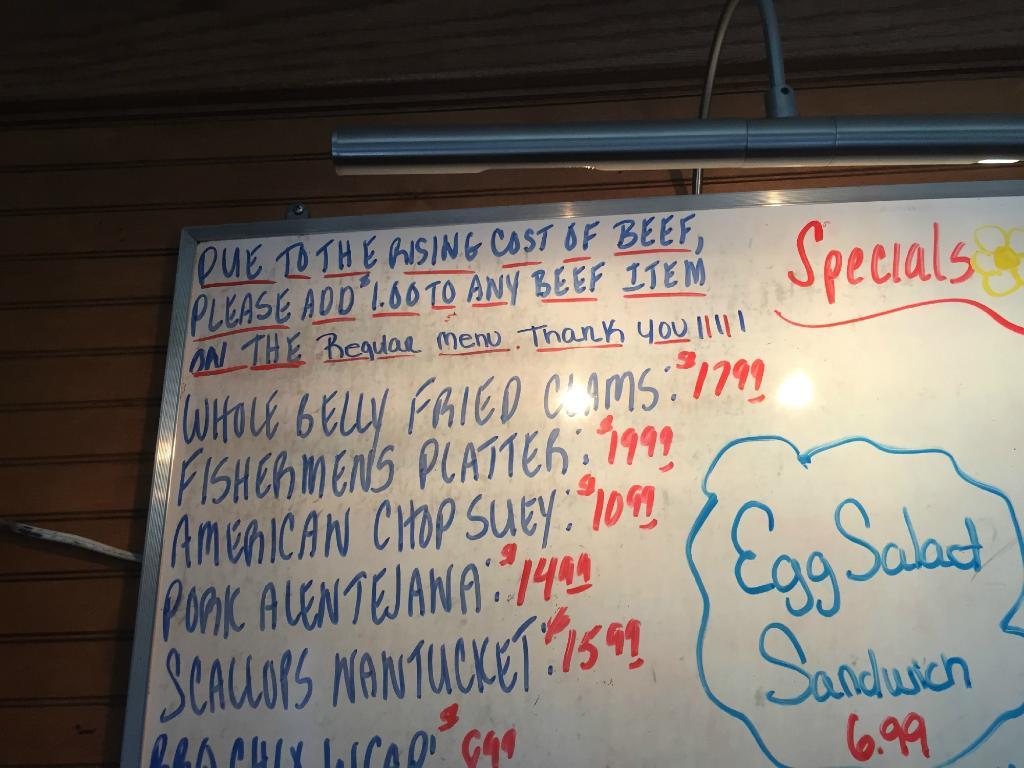 DUE TO THE RISING COST OF BEEF,
PLEASE ADD $1.00 TO ANY BEEF ITEM
ON THE Regular menu. Thank you!!!!!
WHOLE BELLY FRIED CLAMS: $17.99
FISHERMENS PLATTER: $19.99
AMERICAN CHOP SUEY: $10.99
PORK ALENTEJANA: $14.99
SCALLOPS NANTUCKET: $15.99
BBQ CHIX WRAP: $6.99
Specials
Egg Salad
Sandwich
6.99